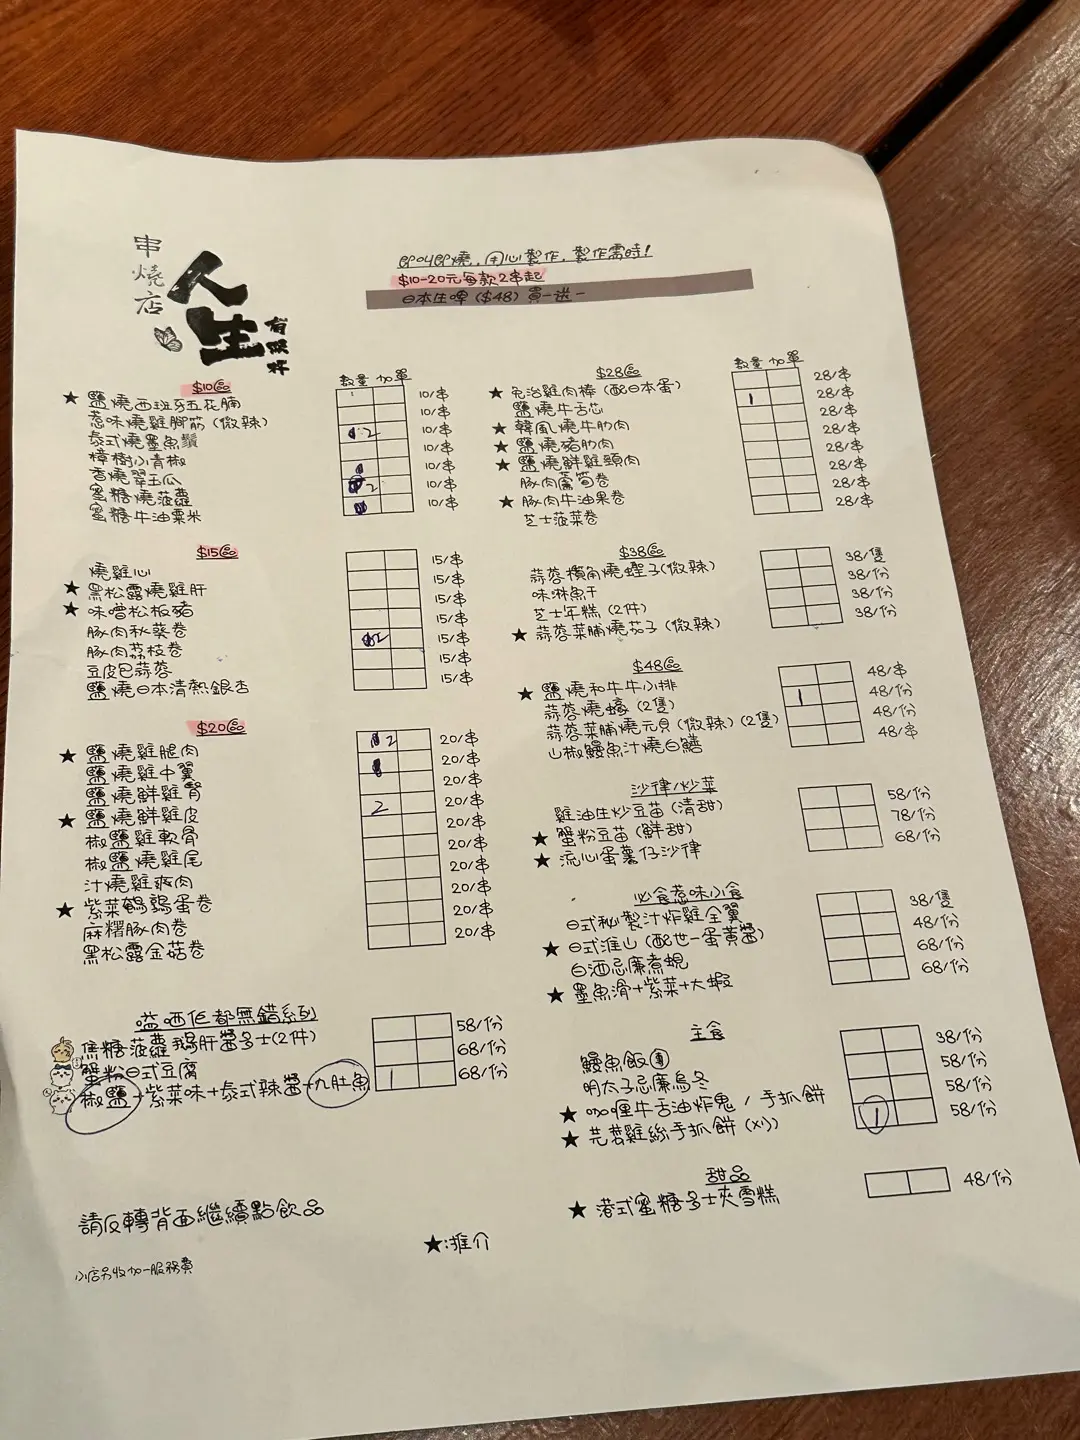 串燒店
人生
有限時
即叫即燒，用心製作，製作需時！
$10-20元每款2串起
日本生啤 ($48) 買一送一
$10區
數量 加單
★ 鹽燒西班牙五花腩 10/串
惹味燒雞腳筋 (微辣) 10/串
泰式燒墨魚鬚 2 10/串
樟樹小青椒 10/串
香燒翠玉瓜 10/串
蜜糖燒菠蘿 2 10/串
蜜糖牛油粟米 10/串
$15區
燒雞心 15/串
★ 黑松露燒雞肝 15/串
★ 味噌松板豬 15/串
豚肉秋葵卷 15/串
豚肉荔枝卷 2 15/串
豆皮巴蒜蓉 15/串
鹽燒日本清熱銀杏 15/串
$20區
★ 鹽燒雞腿肉 2 20/串
鹽燒雞中翼 20/串
鹽燒鮮雞腎 20/串
★ 鹽燒鮮雞皮 2 20/串
椒鹽雞軟骨 20/串
椒鹽燒雞尾 20/串
汁燒雞爽肉 20/串
★ 紫菜鵪鶉蛋卷 20/串
麻糬豚肉卷 20/串
黑松露金菇卷 20/串
嗌哂佢都無錯系列
焦糖菠蘿鵝肝醬多士(2件) 58/份
蟹粉日式豆腐 68/份
椒鹽+紫菜味+泰式辣醬+九肚魚 1 68/份
請反轉背面繼續點飲品
小店另收加一服務費
★:推介
$28區
數量 加單
★ 免治雞肉棒 (配日本蛋) 28/串
鹽燒牛舌芯 1 28/串
★ 韓風燒牛肋肉 28/串
★ 鹽燒豬肋肉 28/串
★ 鹽燒鮮雞頸肉 28/串
豚肉蘆筍卷 28/串
★ 豚肉牛油果卷 28/串
芝士菠菜卷 28/串
$38區
蒜蓉欖角燒蟶子(微辣) 38/隻
味淋魚干 38/份
芝士年糕 (2件) 38/份
★ 蒜蓉菜脯燒茄子 (微辣) 38/份
$48區
★ 鹽燒和牛牛小排 48/串
蒜蓉燒蠔 (2隻) 1 48/份
蒜蓉菜脯燒元貝 (微辣) (2隻) 48/份
山椒鰻魚汁燒白鱔 48/串
沙律/炒菜
雞油生炒豆苗 (清甜) 58/份
★ 蟹粉豆苗 (鮮甜) 78/份
★ 流心蛋薯仔沙律 68/份
必食惹味小食
日式秘製汁炸雞全翼 38/隻
★ 日式淮山 (配世一蛋黃醬) 48/份
白酒忌廉煮蜆 68/份
★ 墨魚滑+紫菜+大蝦 68/份
主食
鰻魚飯 38/份
明太子忌廉烏冬 58/份
★ 咖喱牛舌油炸鬼 / 手抓餅 58/份
★ 芫荽雞絲手抓餅 (刈) 1 58/份
甜品
★ 港式蜜糖多士夾雪糕 48/份